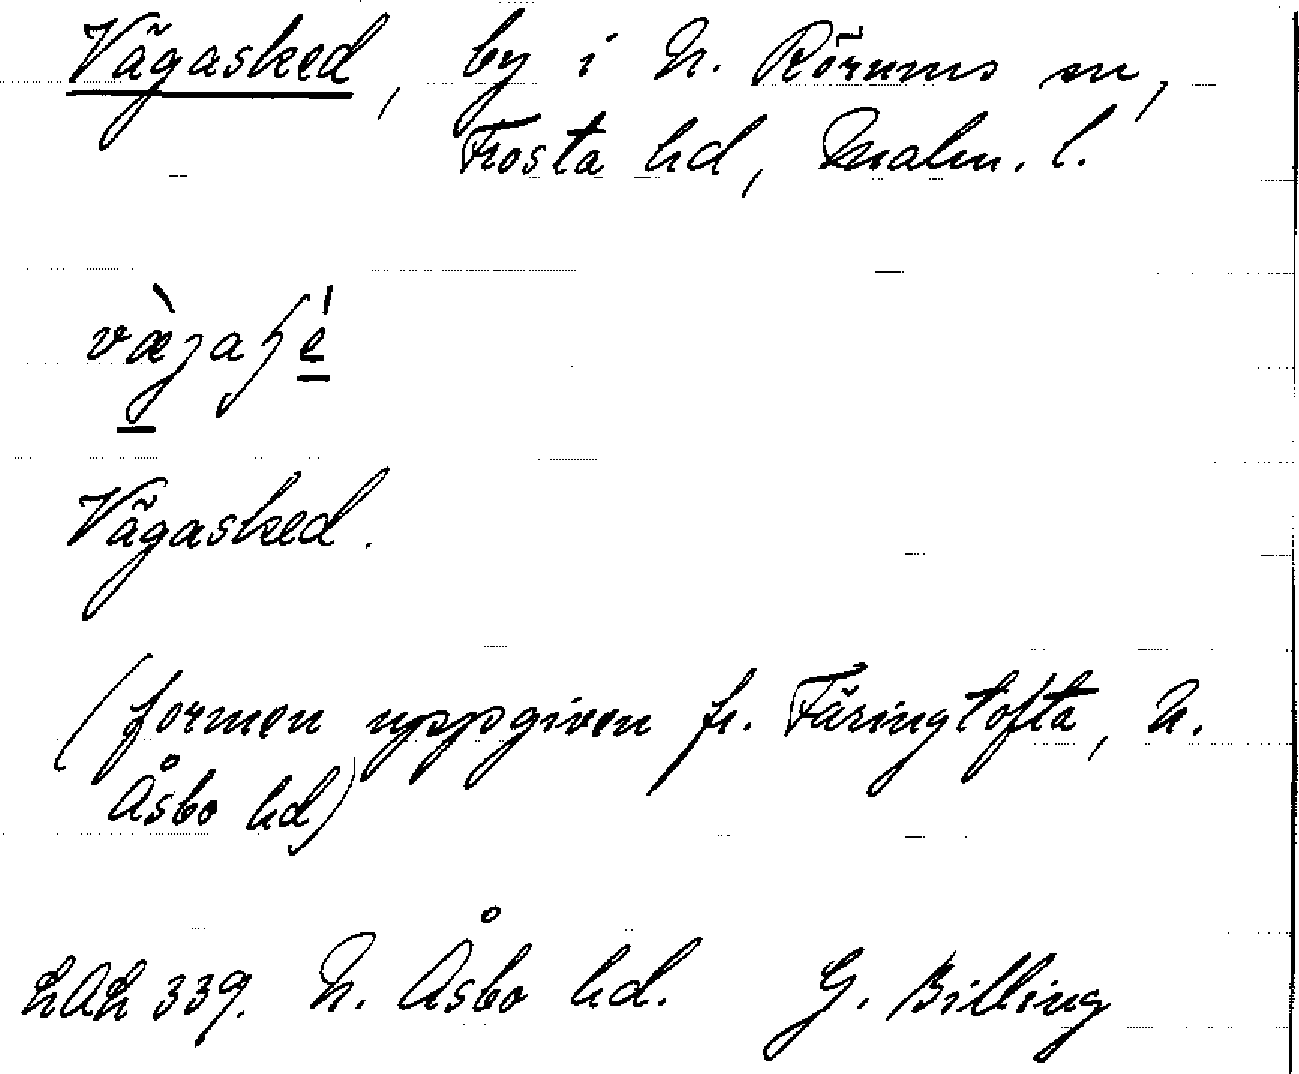 Vägasked, by i N. Rörums sn,
Frosta hd, Malm. l.
Vägasked.
(formen uppgiven fr. Färingtofta, N.
Åsbo hd)
LAL 339. N. Åsbo hd. G. Billing